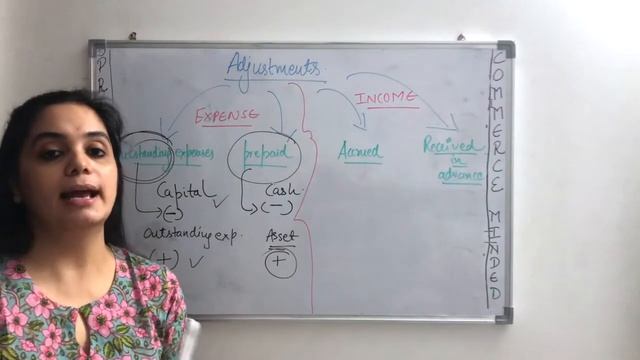 Adjustments.
EXPENSE
INCOME
expenses
prepaid
Accrued
Received
in
advance
Capital ✓
(-)
Cash
(-)
Outstanding exp.
(+) ✓
Asset
+
COMMERCE MINDED